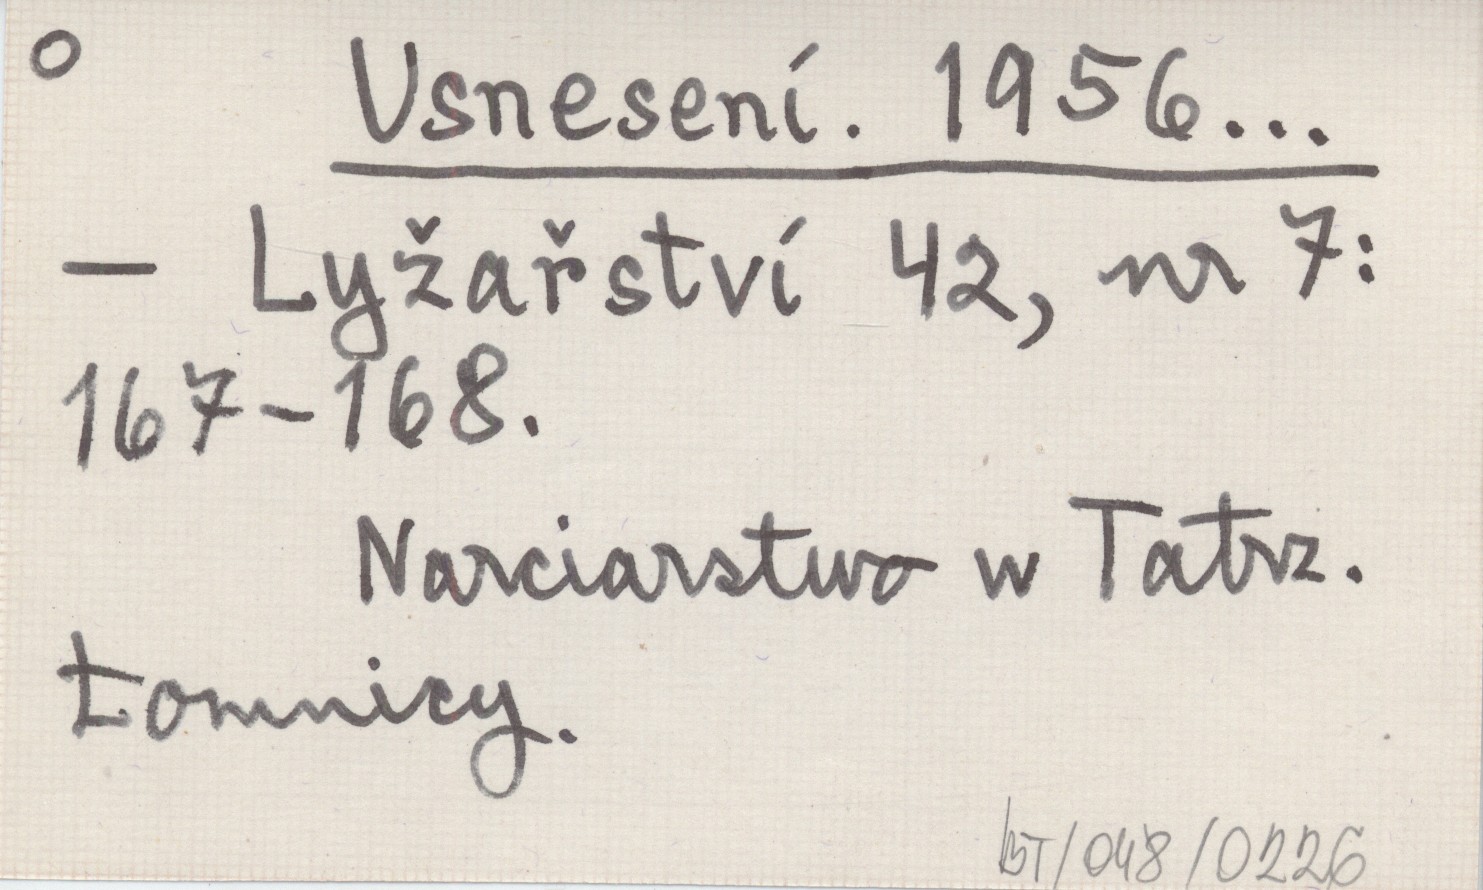 o Usnesení. 1956...
– Lyžařství 42, nr 7:
167–168.
Narciarstwo w Tatrz.
Łomnicy.
BT/048/0226